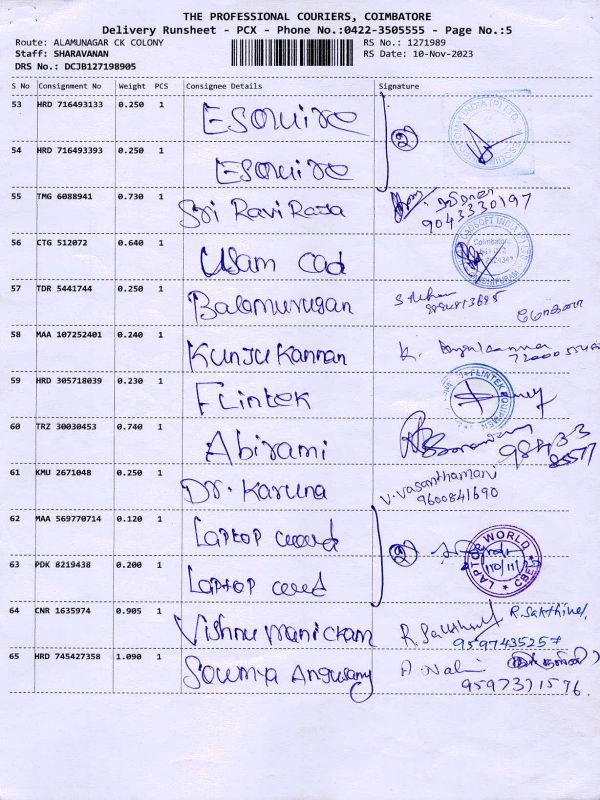 THE PROFESSIONAL COURIERS, COIMBATORE
Delivery Runsheet - PCX - Phone No.:0422-3505555 - Page No.:5
Route: ALAMUNAGAR CK COLONY RS No.: 1271989
Staff: SHARAVANAN RS Date: 10-Nov-2023
DRS No.: DCJB127198905
S No Consignment No Weight PCS Consignee Details Signature
53 HRD 716493133 0.250 1 Esquire 2
54 HRD 716493393 0.250 1 Esquire
55 TMG 6088941 0.730 1 Sri Ravi Raja 9043330197
56 CTG 512072 0.640 1 Ulam Cad
57 TDR 5441744 0.250 1 Balamurugan
58 MAA 107252401 0.240 1 Kunju Kannan K.
59 HRD 305718039 0.230 1 Flintek FLINTEK
60 TRZ 30030453 0.740 1 Abirami
61 KMU 2671048 0.250 1 Dr. Karuna V. Vasanthamani
9600841690
62 MAA 569770714 0.120 1 Laptop 2 LAPTOP WORLD CBE
63 PDK 8219438 0.200 1 Laptop
64 CNR 1635974 0.905 1 Vishnu Manickam R. Sakthivel R. Sakthivel
9597435257
65 HRD 745427358 1.090 1 Sowmya A. Nalini
9597371576